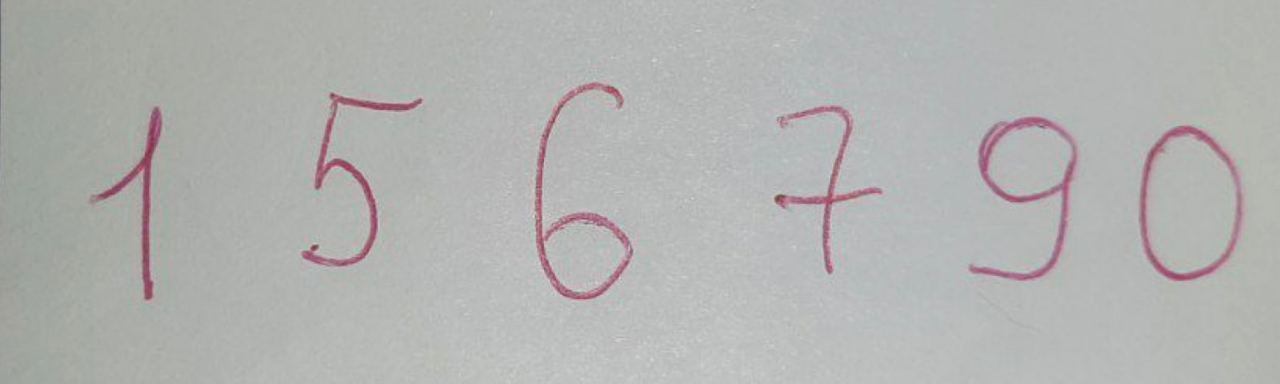 1 5 6 7 9 0